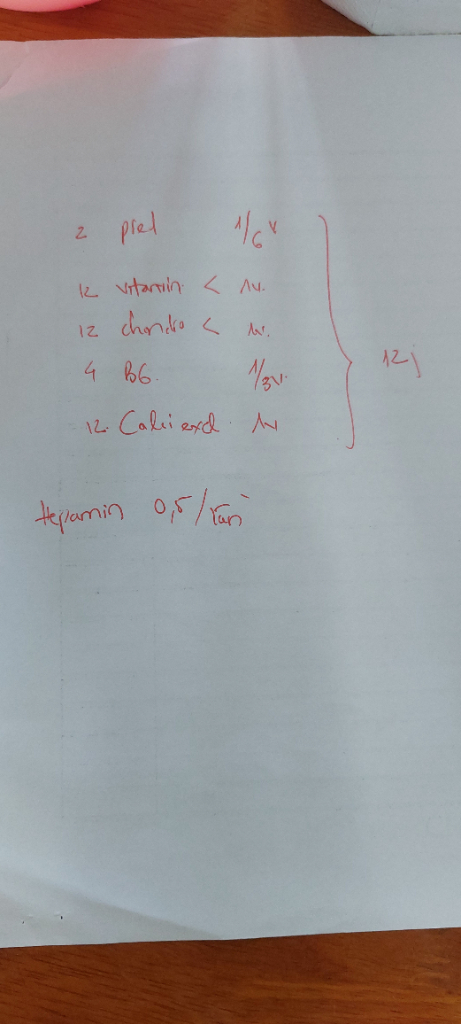 2 pred 1/6 v
12 vitamin < 1v.
12 chondro < 1v.
4 B6. 1/3v.
12. Calci 1v
12j
Hepamin 0,5/